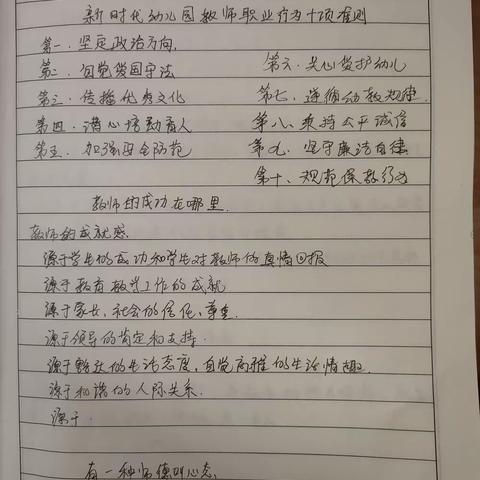 新时代幼儿园教师职业行为十项准则
第一.坚定政治方向.
第二.自觉爱国守法
第六.关心爱护幼儿
第三.传播优秀文化
第七.遵循幼教规律.
第四.潜心培幼育人
第八.秉持公平诚信
第五.加强安全防范
第九.坚守廉洁自律
第十、规范保教行为
教师的成功在哪里.
教师的成就感.
源于学生的成功和学生对教师的真情回报
源于教育教学工作的成就
源于家长、社会的信任、尊重.
源于领导的肯定和支持.
源于豁达的生活态度,自觉高雅的生活情趣.
源于和谐的人际关系.
源于.
有一种师德叫心态.